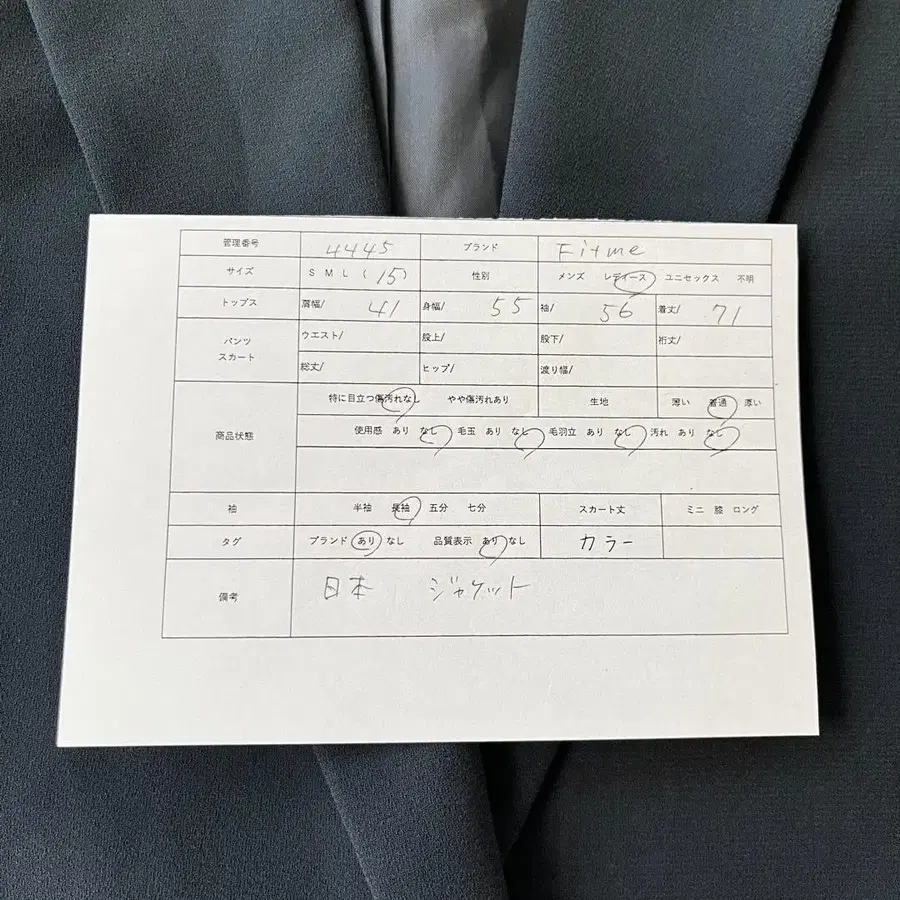 管理番号 4445 ブランド Fitme
サイズ S M L (15) 性別 メンズ レディース ユニセックス 不明
トップス 肩幅/ 41 身幅/ 55 袖/ 56 着丈/ 71
パンツ スカート ウエスト/ 股上/ 股下/ 裄丈/
総丈/ ヒップ/ 渡り幅/
商品状態 特に目立つ傷汚れなし やや傷汚れあり 生地 薄い 普通 厚い
使用感 あり なし 毛玉 あり なし 毛羽立 あり なし 汚れ あり なし
袖 半袖 長袖 五分 七分 スカート丈 ミニ 膝 ロング
タグ ブランド あり なし 品質表示 あり なし カラー
備考 日本 ジャケット